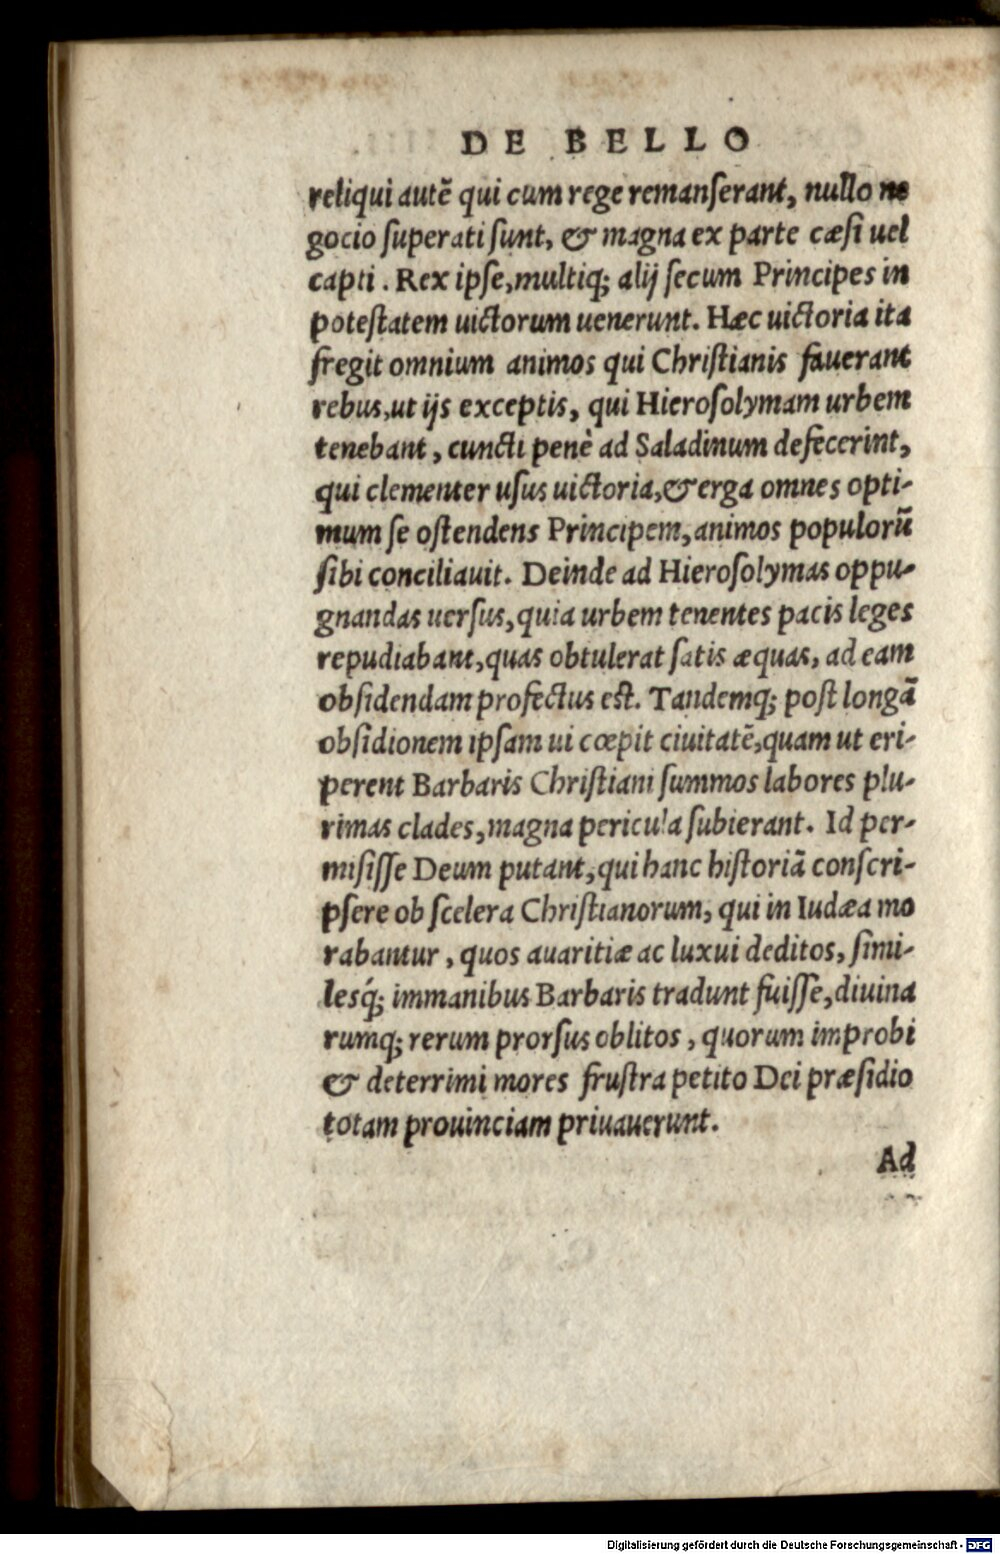 DE BELLO
reliqui autē qui cum rege remanſerant, nullo ne
gocio ſuperati ſunt, & magna ex parte cæſi uel
capti. Rex ipſe, multiq; alij ſecum Principes in
poteſtatem uictorum uenerunt. Hæc uictoria ita
fregit omnium animos qui Chriſtianis fauerant
rebus, ut ijs exceptis, qui Hieroſolymam urbem
tenebant, cuncti penè ad Saladinum defecerint,
qui clementer uſus uictoria, & erga omnes opti-
mum ſe oſtendens Principem, animos populorū
ſibi conciliauit. Deinde ad Hieroſolymas oppu-
gnandas uerſus, quia urbem tenentes pacis leges
repudiabant, quas obtulerat ſatis æquas, ad eam
obſidendam profectus eſt. Tandemq; poſt longā
obſidionem ipſam ui cœpit ciuitatē, quam ut eri-
perent Barbaris Chriſtiani ſummos labores plu-
rimas clades, magna pericula ſubierant. Id per-
miſiſſe Deum putant, qui hanc hiſtoriā conſcri-
pſere ob ſcelera Chriſtianorum, qui in Iudæa mo
rabantur, quos auaritiæ ac luxui deditos, ſimi-
leſq́; immanibus Barbaris tradunt fuiſſe, diuina
rumq; rerum prorſus oblitos, quorum improbi
& deterrimi mores fruſtra petito Dei præſidio
totam prouinciam priuauerunt.
Ad
Digitalisierung gefördert durch die Deutsche Forschungsgemeinschaft - DFG